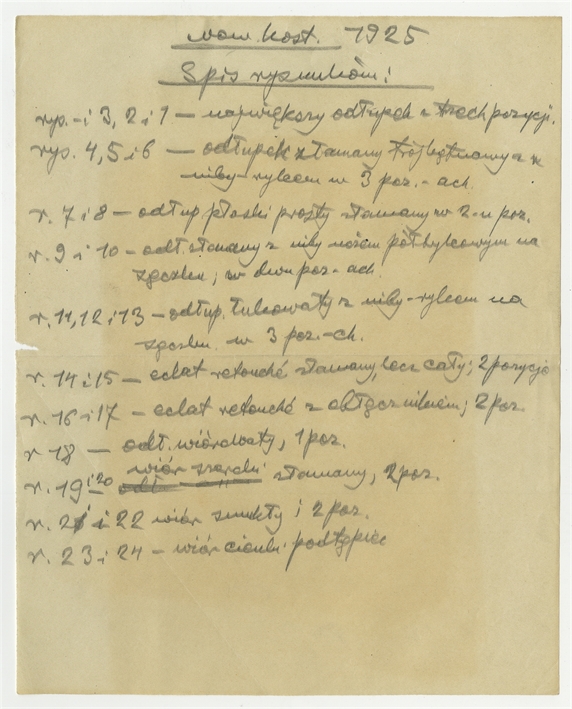 Now. Kost. 1925
Spis rysunków:
rys. - i 3, 2 i 1 — największy odłupek z trech pozycji.
rys. 4, 5 i 6 — odłupek złamany trójkątnawy z
niby-rylcem w 3 poz.- ach.
r. 7 i 8 — odłup płaski prosty złamany w 2-u poz.
r. 9 i 10 — odł. złamany z niby nożem półtylcowym na
zgęciu; w dwu poz- ach.
r. 11, 12 i 13 — odłup. łukowaty z niby-rylcem na
w 3 poz.-ch.
r. 14 i 15 — eclat retouché złamany, lecz cały; 2 pozycje
r. 16 i 17 — eclat retouché z 2 poz.
r 18 — odł. wiórowaty, 1 poz.
wiór szeroki
r. 19 i 20 złamany, 2 poz.
r. 21 i 22 wiór smukły i 2 poz.
r. 23 i 24 — wiór cienki podtępiec